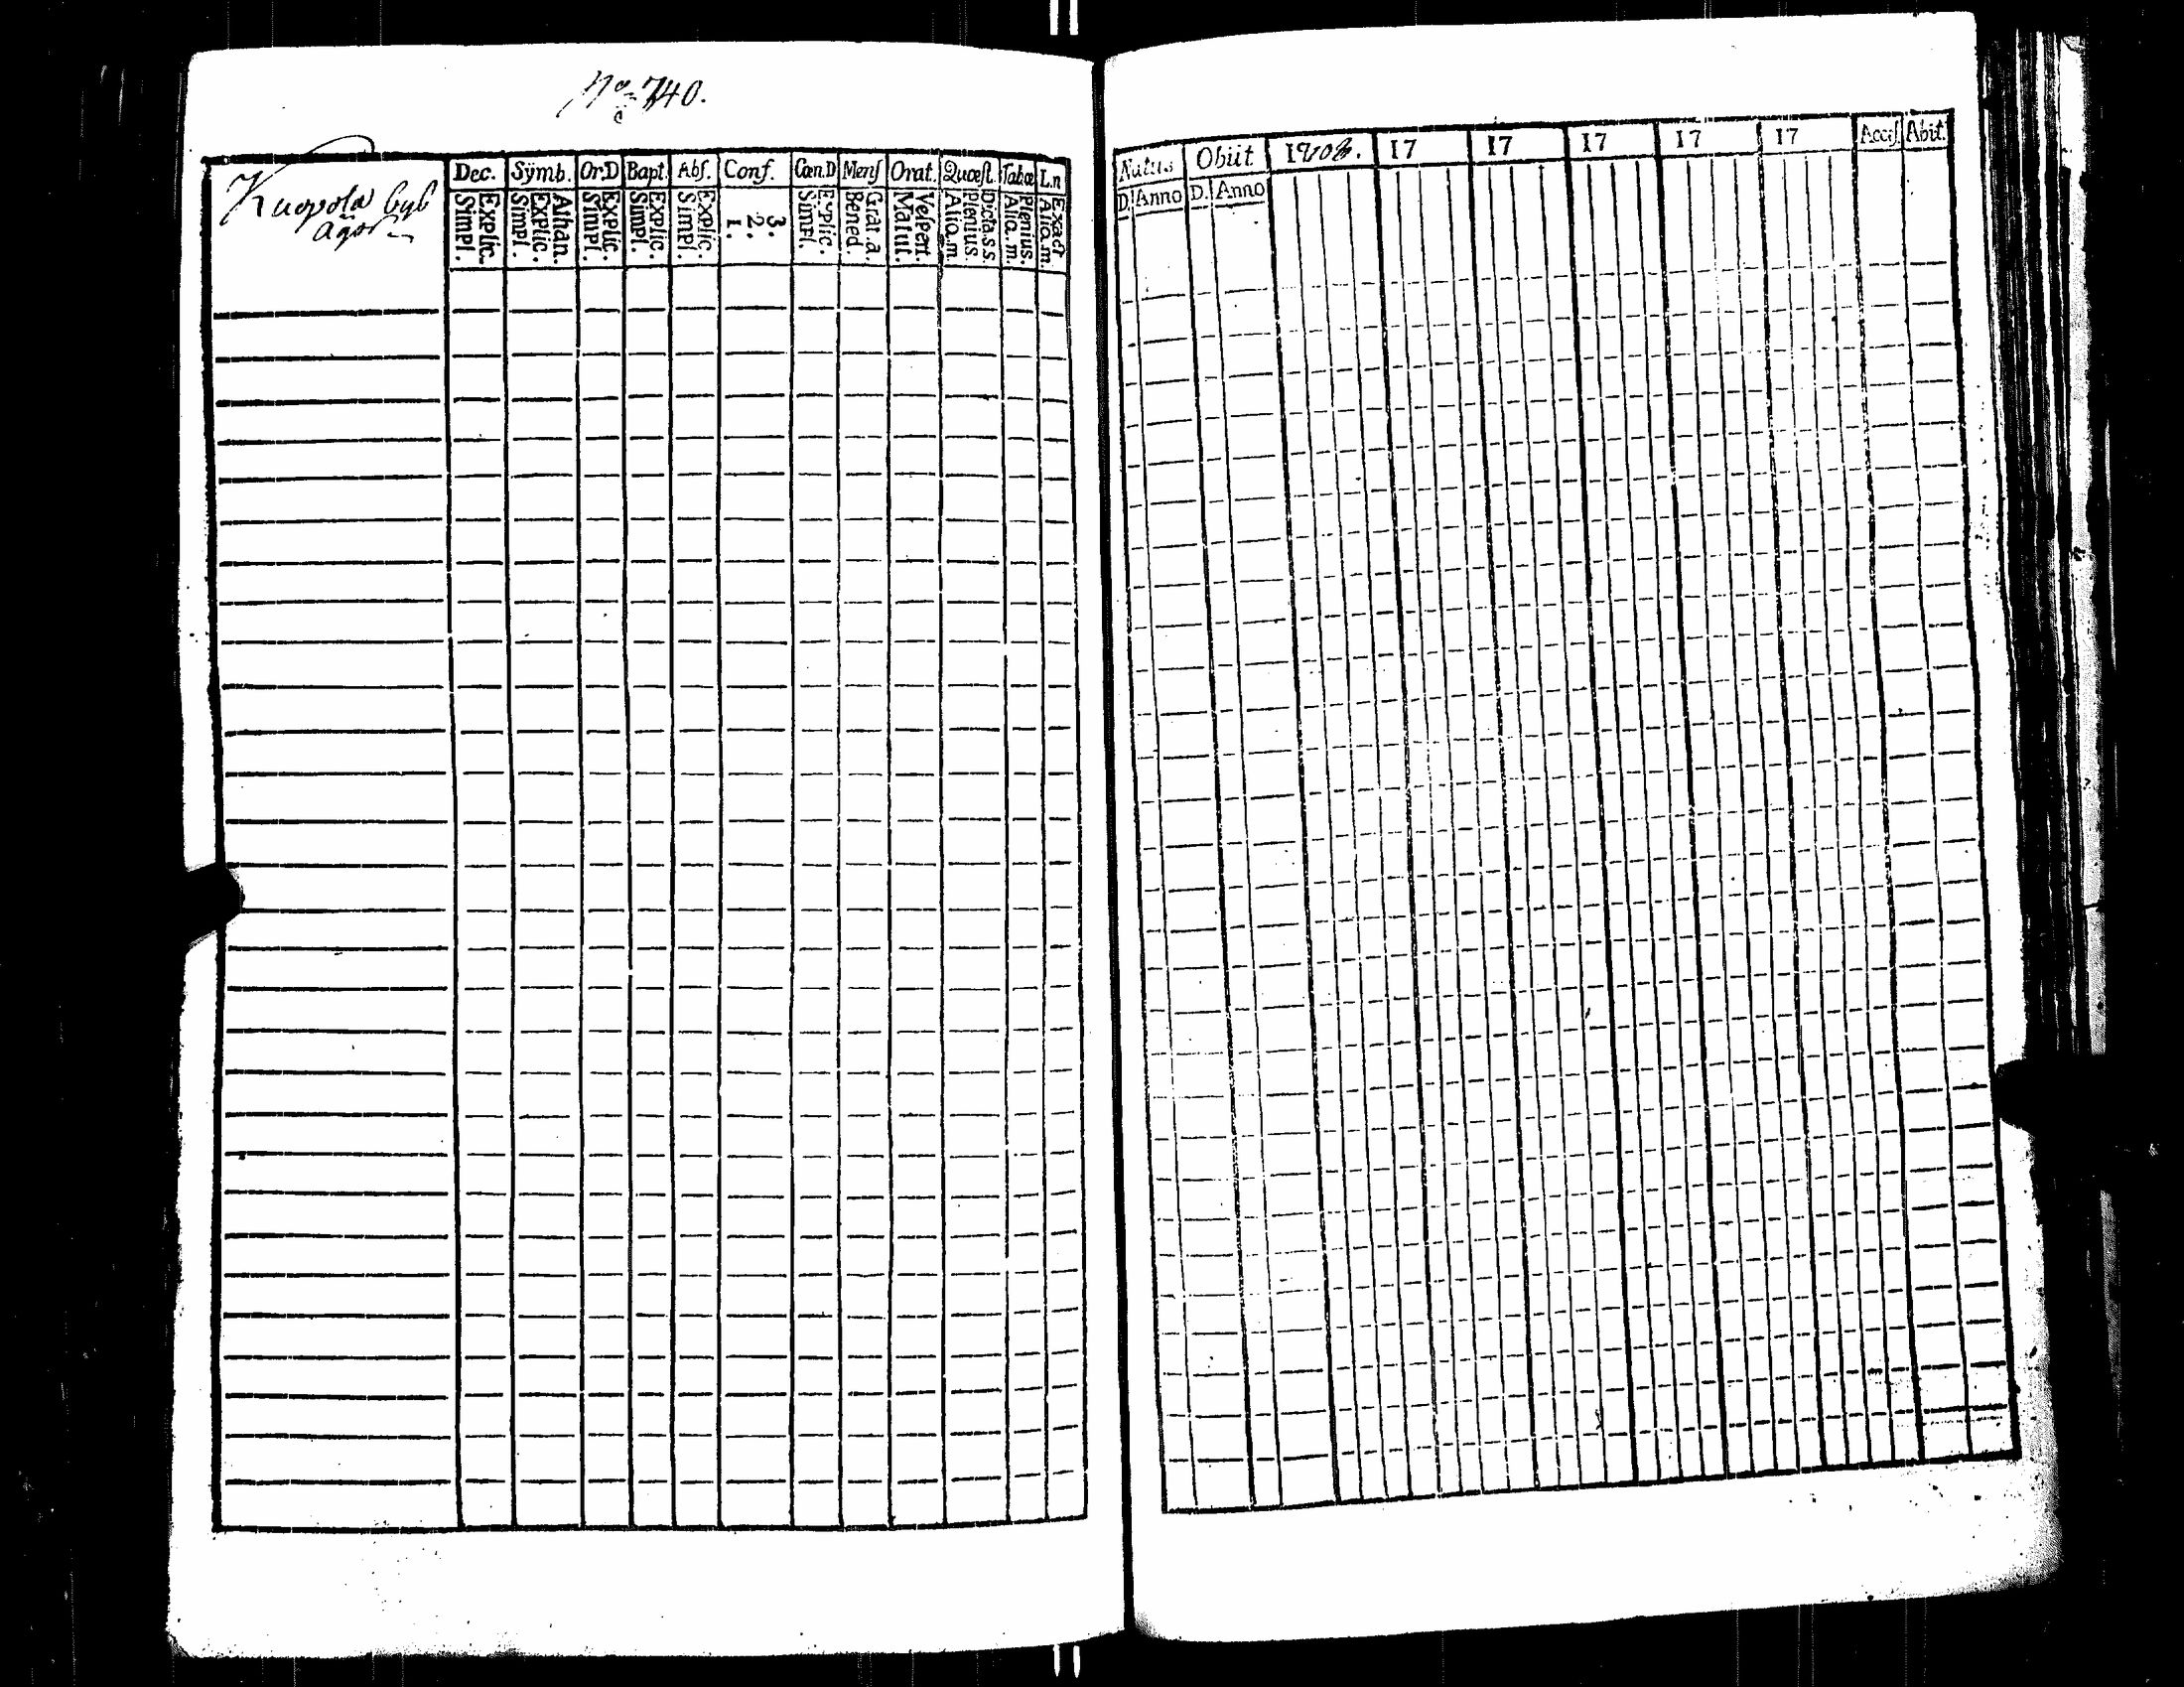 No 740.
Kuopola byb
ägor
Dec. Sÿmb. Or.D Bapt. Abſ. Conf. Cœn.D Menſ Orat. Quœſt. Tabœ L.n
Explic. Simpl. Athan. Explic. Simpl. Explic. Simpl. Explic. Simpl. Explic. Simpl. 3. 2. 1. Explic. Simpl. Grat.a. Bened. Veſpert. Matut. Dicta.s.s. Plenius. Alio.m. Plenius. Alio.m. Exact Alio.m.
Natus Obiit 1803. 17 17 17 17 17 Acceſ. Abit.
D. Anno D. Anno